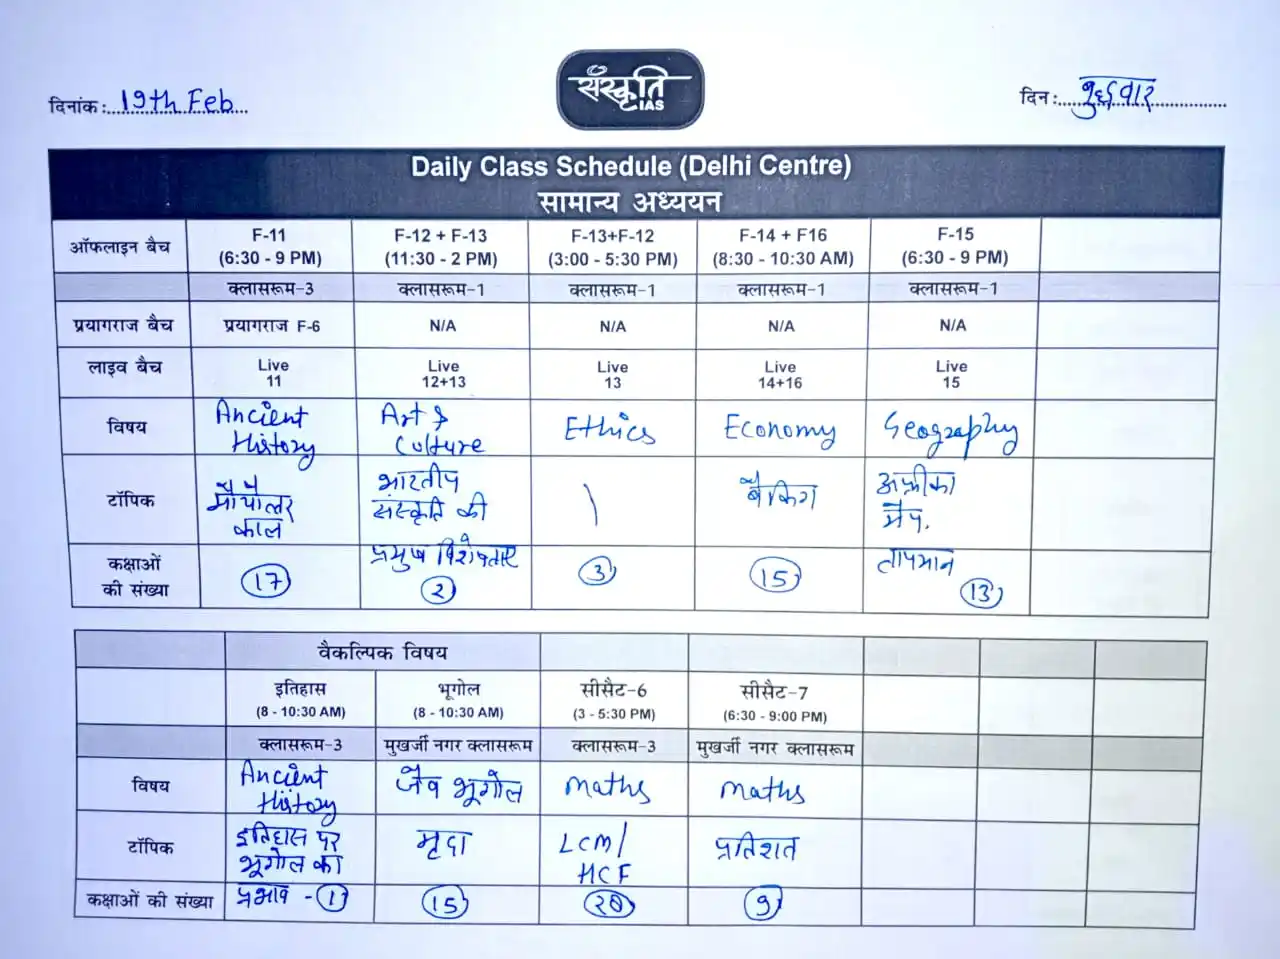 संस्कृति
IAS
दिनांक : 19th Feb
दिन : बुधवार
Daily Class Schedule (Delhi Centre)
सामान्य अध्ययन
ऑफलाइन बैच F-11 (6:30 - 9 PM) F-12 + F-13 (11:30 - 2 PM) F-13+F-12 (3:00 - 5:30 PM) F-14 + F16 (8:30 - 10:30 AM) F-15 (6:30 - 9 PM)
क्लासरूम-3 क्लासरूम-1 क्लासरूम-1 क्लासरूम-1 क्लासरूम-1
प्रयागराज बैच प्रयागराज F-6 N/A N/A N/A N/A
लाइव बैच Live 11 Live 12+13 Live 13 Live 14+16 Live 15
विषय Ancient History Art & Culture Ethics Economy Geography
टॉपिक काल भारतीय संस्कृति की प्रमुख विशेषताएं \ बैंकिंग अफ्रीका मैप. तापमान
कक्षाओं की संख्या 17 2 3 15 13
वैकल्पिक विषय
इतिहास (8 - 10:30 AM) भूगोल (8 - 10:30 AM) सीसैट-6 (3 - 5:30 PM) सीसैट-7 (6:30 - 9:00 PM)
क्लासरूम-3 मुखर्जी नगर क्लासरूम क्लासरूम-3 मुखर्जी नगर क्लासरूम
विषय Ancient History जैव भूगोल Maths Maths
टॉपिक इतिहास पर भूगोल का प्रभाव - मृदा LCM/ HCF प्रतिशत
कक्षाओं की संख्या 1 15 9